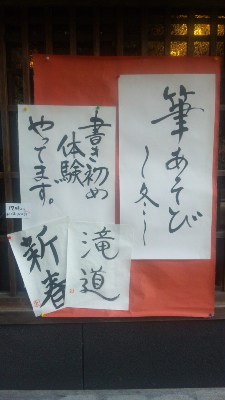 筆あそび
〜冬〜
書き初め
体験
やってます。
滝道
新春